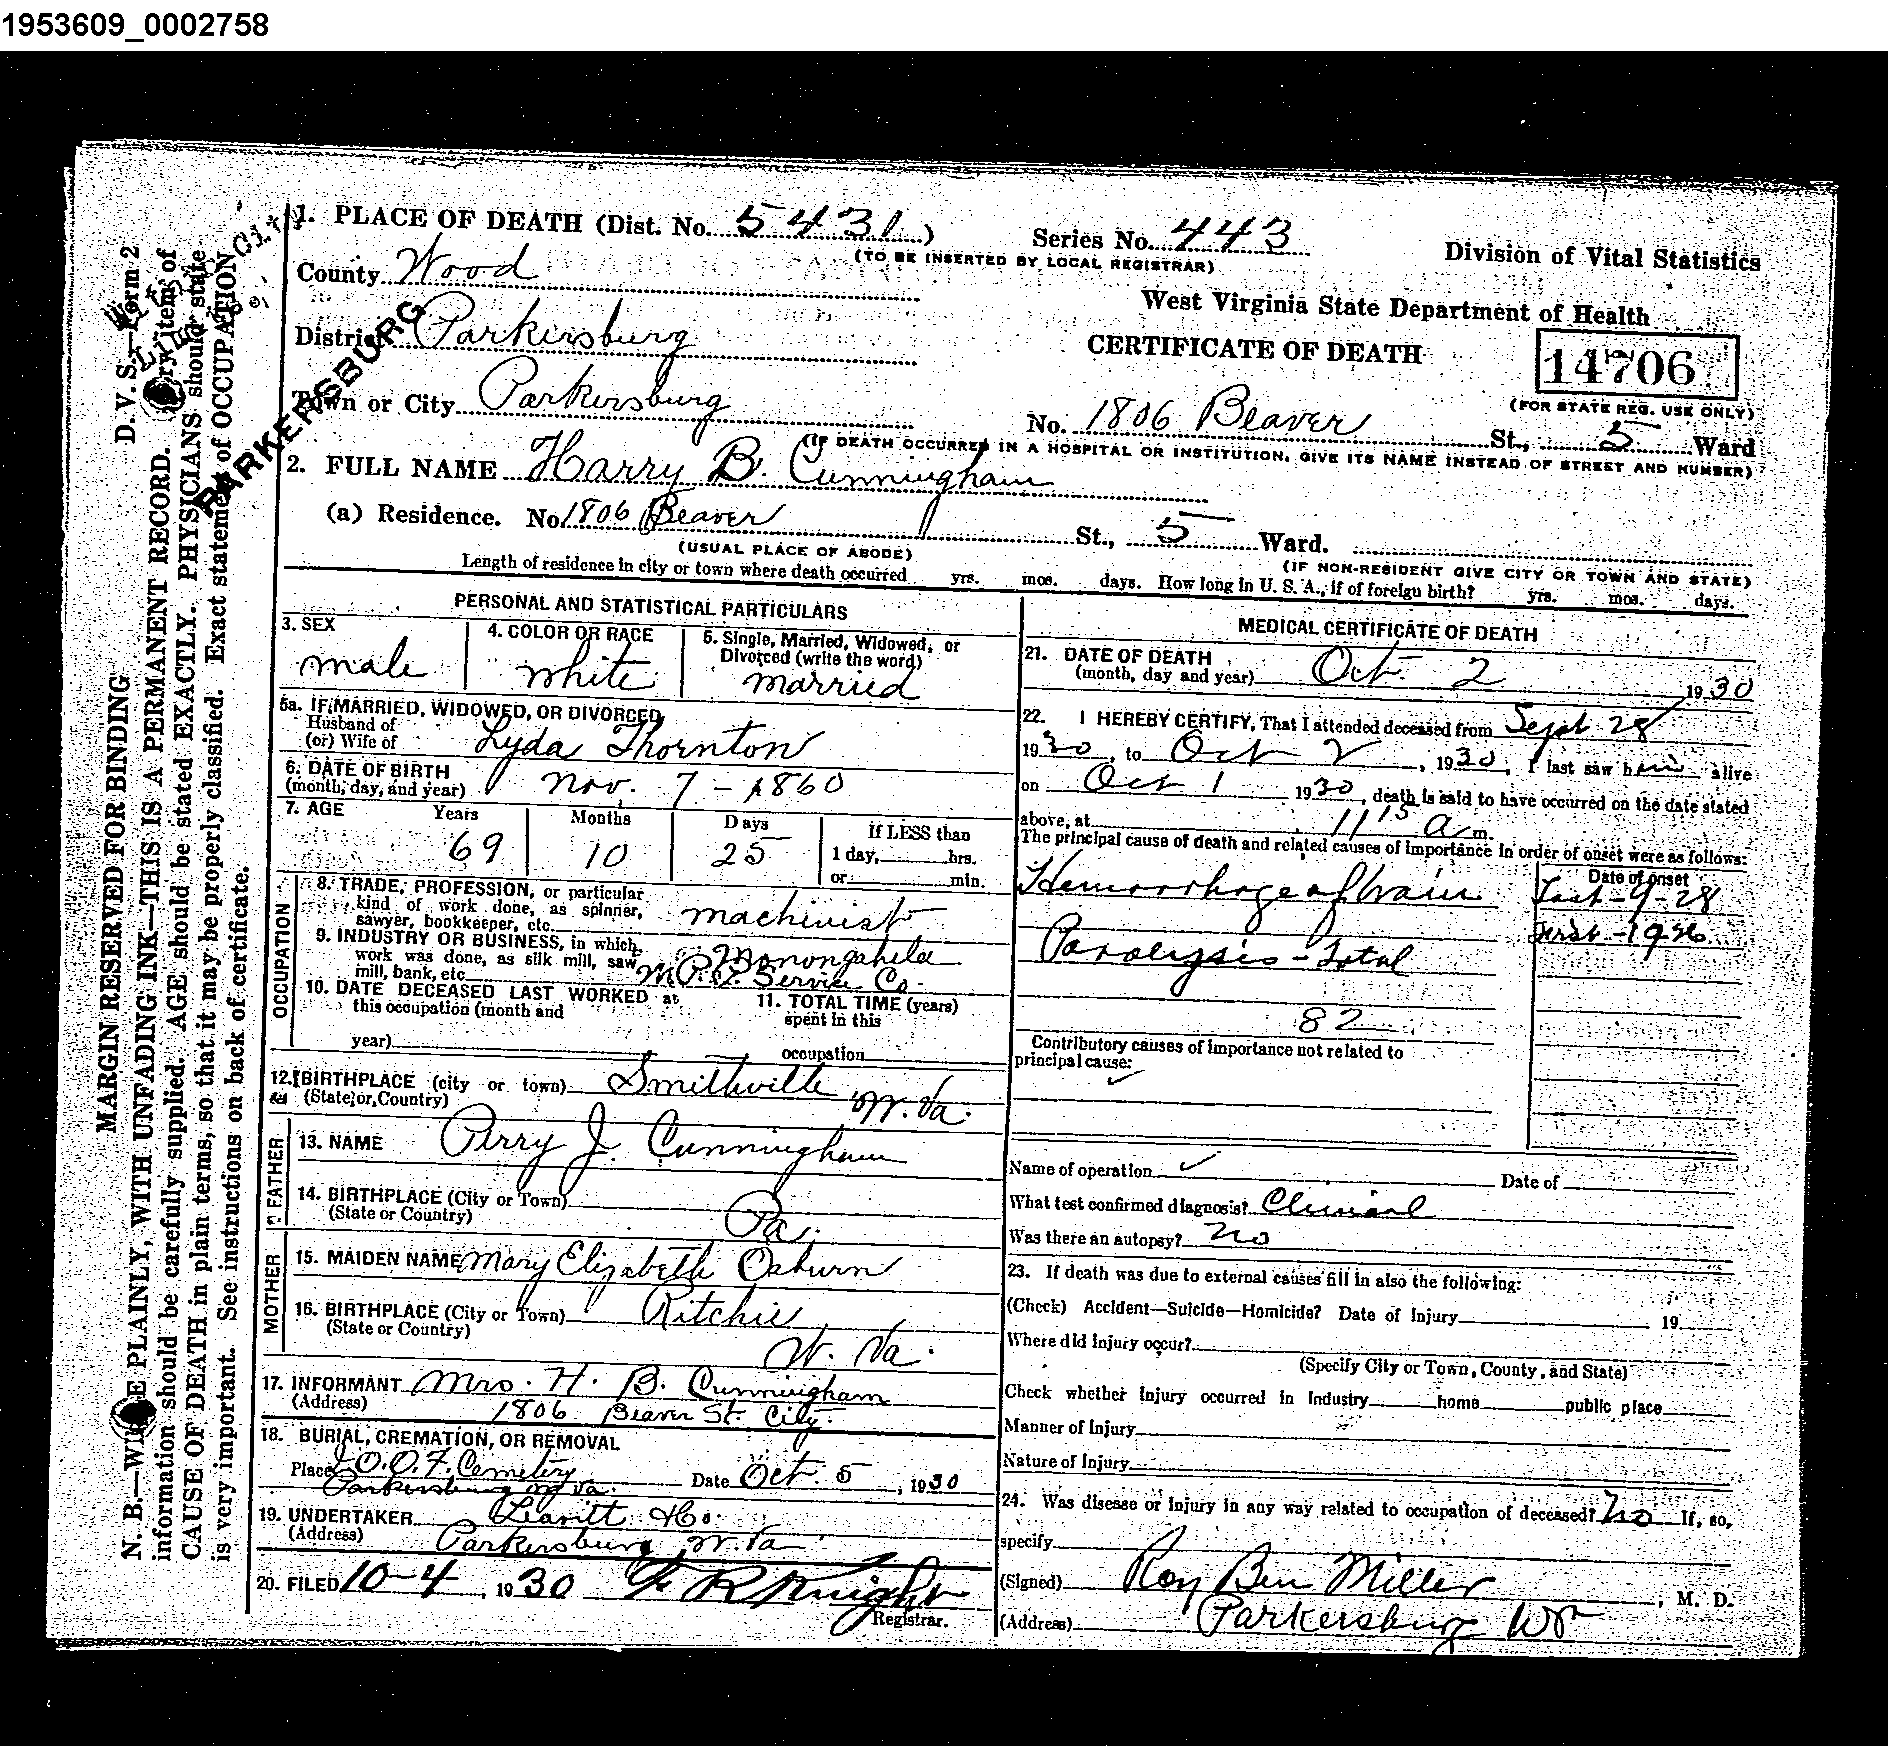 1953609_0002758
1. PLACE OF DEATH (Dist. No. 5431)
Series No. 443
(TO BE INSERTED BY LOCAL REGISTRAR)
Division of Vital Statistics
County Wood
West Virginia State Department of Health
District Parkersburg
CERTIFICATE OF DEATH
14706
(FOR STATE REG. USE ONLY)
PARKERSBURG
Town or City Parkersburg
No. 1806 Beaver St., 5 Ward
(IF DEATH OCCURRED IN A HOSPITAL OR INSTITUTION, GIVE ITS NAME INSTEAD OF STREET AND NUMBER)
2. FULL NAME Harry B. Cunningham
(a) Residence. No. 1806 Beaver St., 5 Ward.
(USUAL PLACE OF ABODE)
(IF NON-RESIDENT GIVE CITY OR TOWN AND STATE)
Length of residence in city or town where death occurred yrs. mos. days. How long in U. S. A., if of foreign birth? yrs. mos. days.
PERSONAL AND STATISTICAL PARTICULARS
3. SEX
male
4. COLOR OR RACE
white
5. Single, Married, Widowed, or
Divorced (write the word)
married
5a. IF MARRIED, WIDOWED, OR DIVORCED
Husband of
(or) Wife of Lyda Thornton
6. DATE OF BIRTH
(month, day, and year) Nov. 7 - 1860
7. AGE Years Months Days If LESS than
69 10 25 1 day, hrs.
or min.
OCCUPATION
8. TRADE, PROFESSION, or particular
kind of work done, as spinner,
sawyer, bookkeeper, etc. machinist
9. INDUSTRY OR BUSINESS, in which
work was done, as silk mill, saw
mill, bank, etc. Monongahela
Service Co.
10. DATE DECEASED LAST WORKED at
this occupation (month and
year)
11. TOTAL TIME (years)
spent in this
occupation
12. BIRTHPLACE (city or town) Smithville
(State or Country) W. Va.
FATHER
13. NAME Perry J. Cunningham
14. BIRTHPLACE (City or Town)
(State or Country) Pa.
MOTHER
15. MAIDEN NAME Mary Elizabeth Osburn
16. BIRTHPLACE (City or Town) Ritchie
(State or Country) W. Va.
17. INFORMANT Mrs. H. B. Cunningham
(Address) 1806 Beaver St. City.
18. BURIAL, CREMATION, OR REMOVAL
Place I.O.O.F. Cemetery Date Oct. 5, 1930
Parkersburg W Va.
19. UNDERTAKER Leavitt
(Address) Parkersburg W. Va
20. FILED 10-4, 1930 Knight
Registrar.
MEDICAL CERTIFICATE OF DEATH
21. DATE OF DEATH
(month, day and year) Oct. 2 1930
22. I HEREBY CERTIFY, That I attended deceased from Sept 28
1930, to Oct 2, 1930, I last saw him alive
on Oct 1 1930, death is said to have occurred on the date stated
above, at 11 15 a m.
The principal cause of death and related causes of importance in order of onset were as follows:
Date of onset
Hemorrhage of brain Last-9-28
Paralysis - Total
82
Contributory causes of importance not related to
principal cause:
Name of operation Date of
What test confirmed diagnosis? Clinical
Was there an autopsy? No
23. If death was due to external causes fill in also the following:
(Check) Accident—Suicide—Homicide? Date of Injury 19
Where did injury occur?
(Specify City or Town, County, and State)
Check whether injury occurred in Industry home public place
Manner of Injury
Nature of Injury
24. Was disease or injury in any way related to occupation of deceased? No If, so,
specify
(Signed) Roy Ben Miller, M. D.
(Address) Parkersburg WV
D. V. S.—Form 2
MARGIN RESERVED FOR BINDING
N. B.—WRITE PLAINLY, WITH UNFADING INK—THIS IS A PERMANENT RECORD. Every item of
information should be carefully supplied. AGE should be stated EXACTLY. PHYSICIANS should state
CAUSE OF DEATH in plain terms, so that it may be properly classified. Exact statement of OCCUPATION
is very important. See instructions on back of certificate.